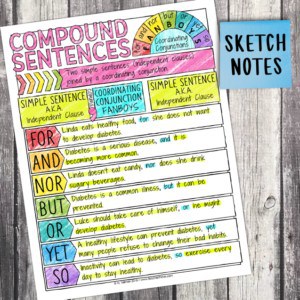 COMPOUND
SENTENCES
for and nor but or yet so
Coordinating
Conjunctions
SKETCH
NOTES
Two simple sentences (independent clauses)
joined by a coordinating conjunction.
SIMPLE SENTENCE
A.K.A.
Independent Clause
COORDINATING
CONJUNCTION
FANBOYS
SIMPLE SENTENCE
A.K.A.
Independent Clause
FOR
Linda eats healthy food, for she does not want
to develop diabetes.
AND
Diabetes is a serious disease, and it is
becoming more common.
NOR
Linda doesn't eat candy, nor does she drink
sugary beverages.
BUT
Diabetes is a common illness, but it can be
prevented.
OR
Luke should take care of himself, or he might
develop diabetes.
YET
A healthy lifestyle can prevent diabetes, yet
many people refuse to change their bad habits.
SO
Inactivity can lead to diabetes, so exercise every
day to stay healthy.